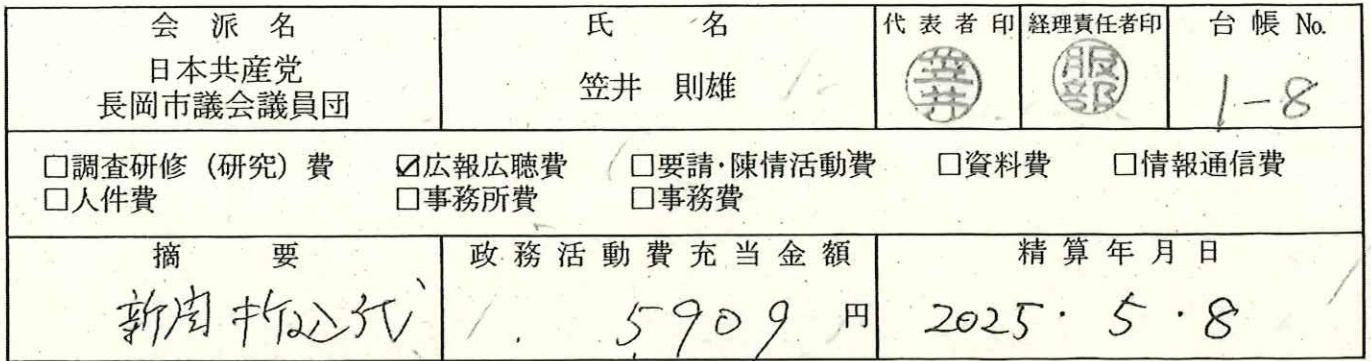 会派名 氏名 代表者印 経理責任者印 台帳No.
日本共産党
長岡市議会議員団
笠井 則雄
笠井
服部
1-8
□調査研修（研究）費 ☑広報広聴費 □要請・陳情活動費 □資料費 □情報通信費
□人件費 □事務所費 □事務費
摘要 政務活動費充当金額 精算年月日
新聞折込代 5909円 2025・5・8